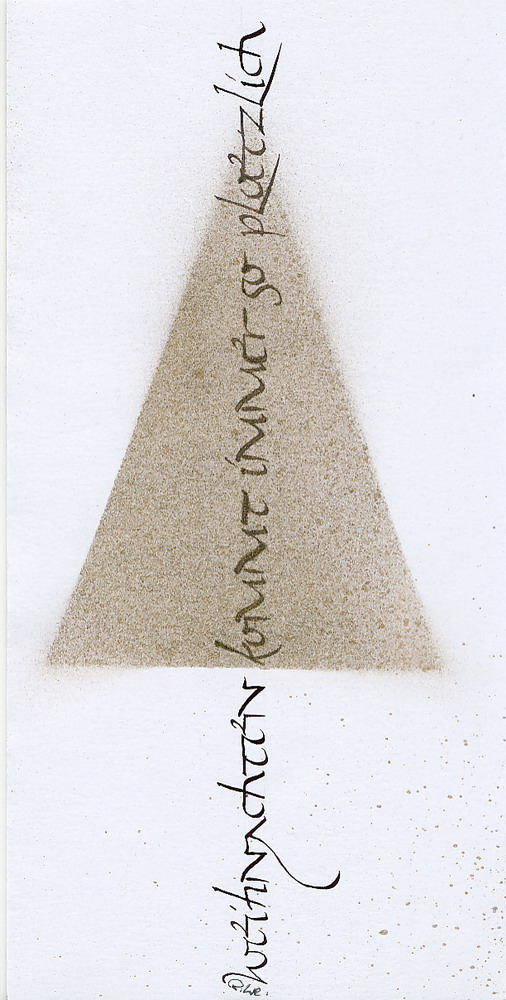 Weihnachten kommt immer so plötzlich